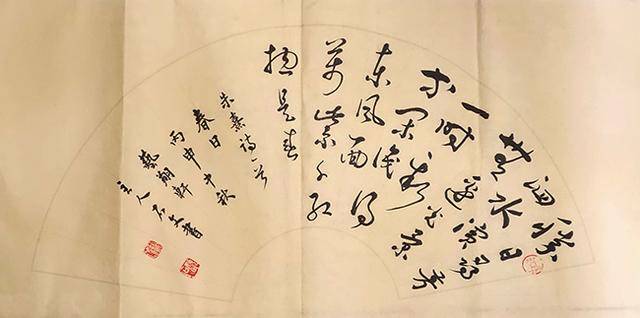 勝日尋芳
泗水濱
無邊光景
一時新
等閒識得
東風面
萬紫千紅
總是春
朱熹詩一首
春日
丙申中秋
藝翔軒
主人石文書